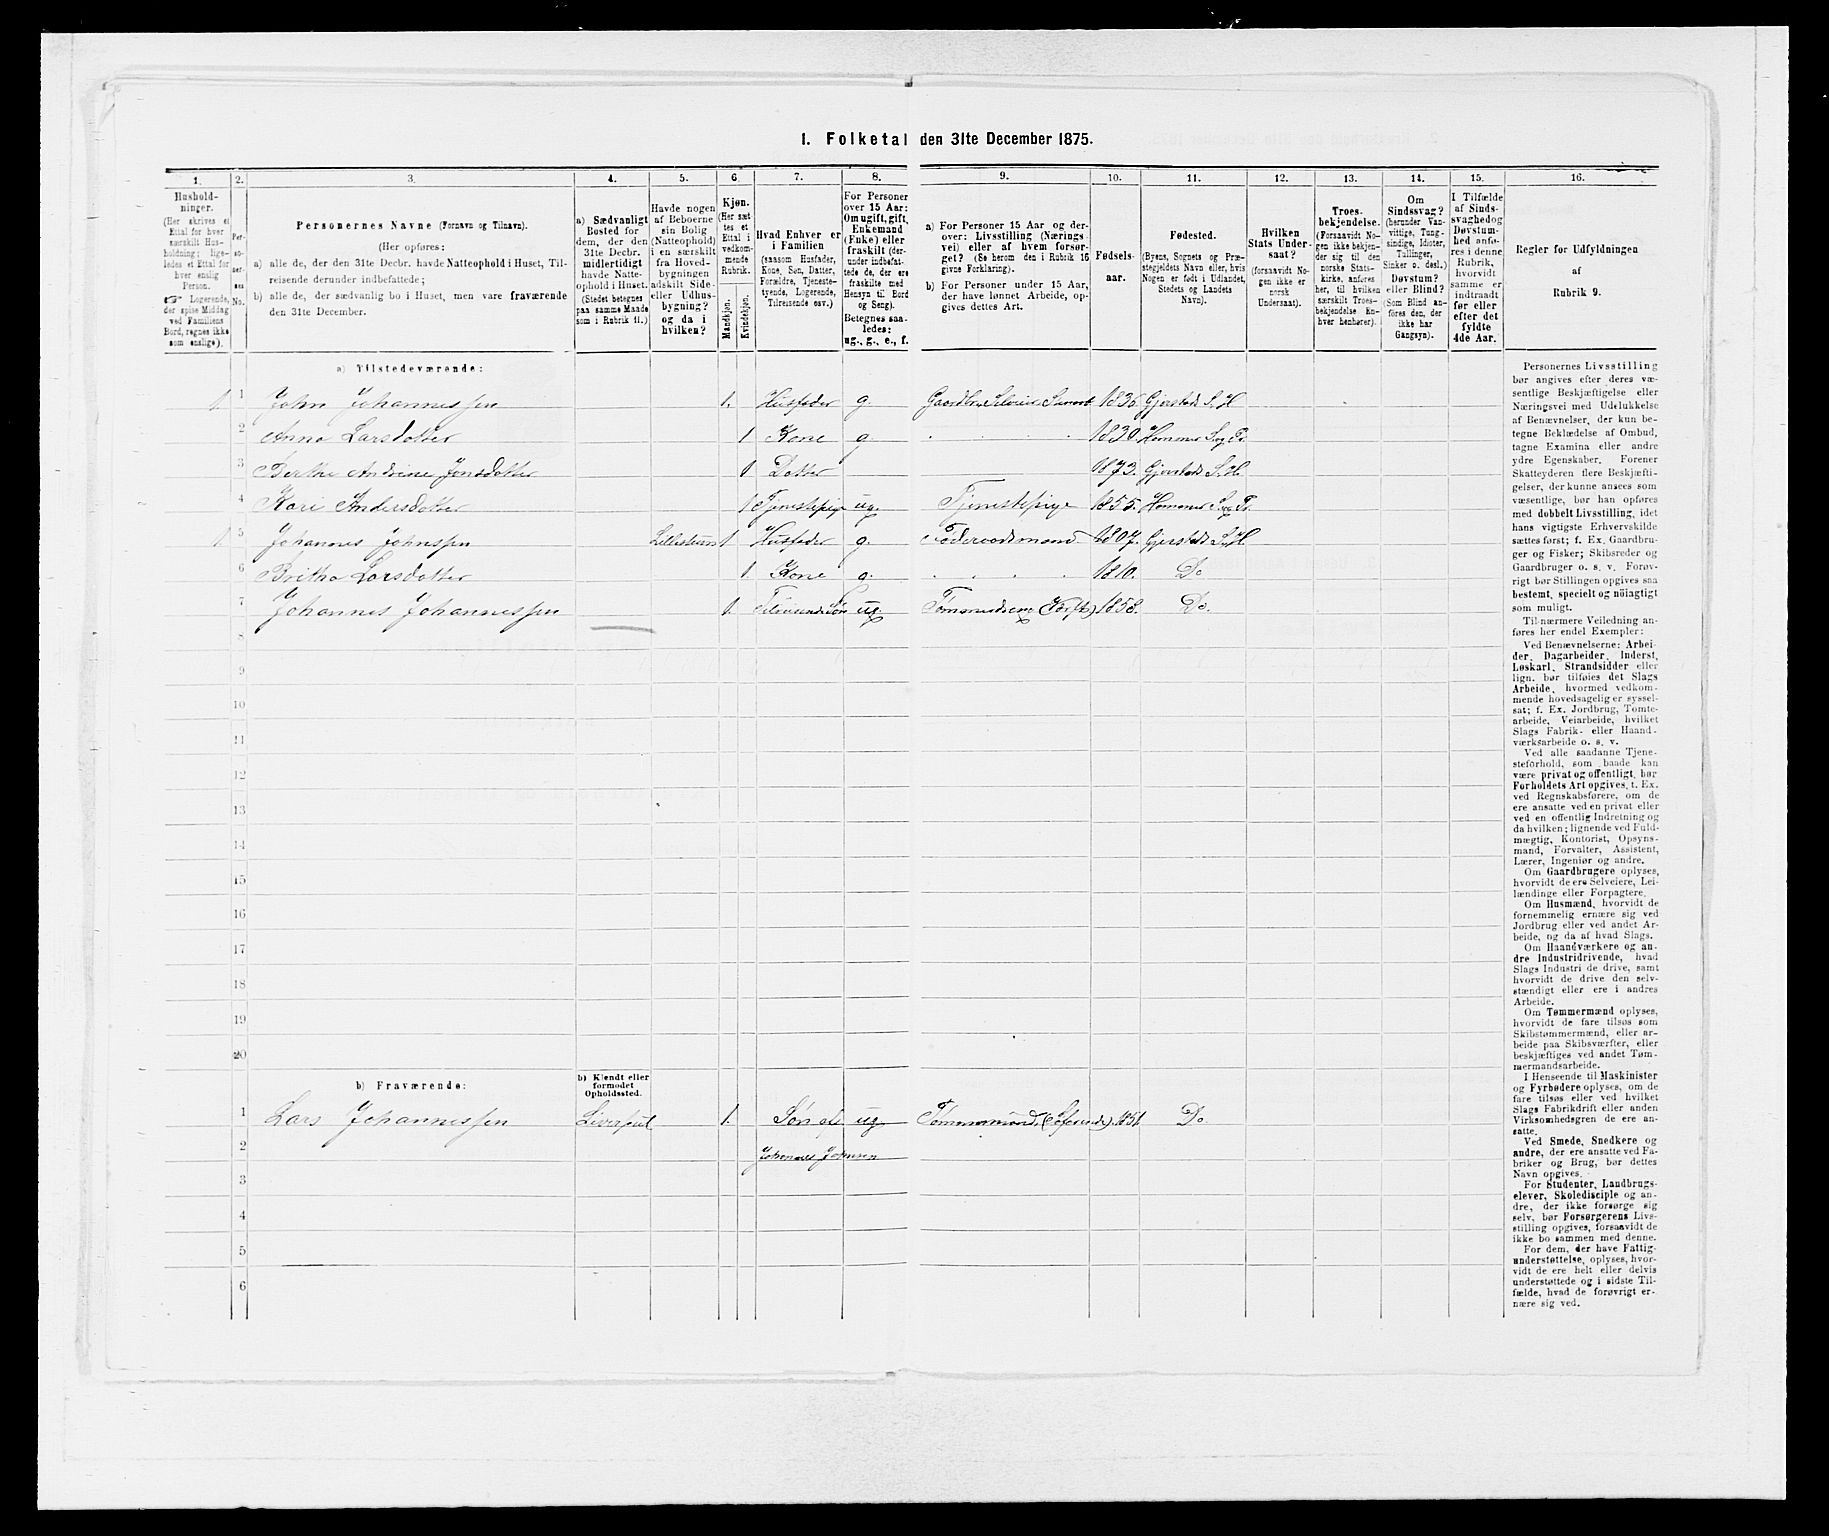 I. Folketal den 31te December 1875.
1. 2. 3. 4. 5. 6. 7. 8. 9. 10. 11. 12. 13. 14. 15. 16.
Hushold-
ninger.
(Her skrives et
Ettal for hver
særskilt Hus-
holdning; lige-
ledes et Ettal for
hver enslig
Person.
☞ Logerende,
der spise Middag
ved Familiens
Bord, regnes ikke
som enslige).
Per-
so-
ner-
nes
No.
Personernes Navne (Fornavn og Tilnavn).
(Her opføres:
a) alle de, der den 31te Decbr. havde Natteophold i Huset, Til-
reisende derunder indbefattede;
b) alle de, der sædvanlig bo i Huset, men vare fraværende
den 31te December.
a) Sædvanligt
Bosted for
dem, der den
31te Decbr.
midlertidigt
havde Natte-
ophold i Huset.
(Stedet betegnes
paa samme Maade
som i Rubrik 11.)
Havde nogen
af Beboerne
sin Bolig
(Natteophold)
i en særskilt
fra Hoved-
bygningen
adskilt Side-
eller Udhus-
bygning?
og da i
hvilken?
Kjøn.
(Her sæt-
tes et
Ettal i
vedkom-
mende
Rubrik.
Mandkjøn.
Kvindekjøn.
Hvad Enhver er
i Familien
(saasom Husfader,
Kone, Søn, Datter,
Forældre, Tjeneste-
tyende, Logerende,
Tilreisende osv.)
For Personer
over 15 Aar:
Om ugift, gift,
Enkemand
(Enke) eller
fraskilt (der-
under indbefat-
tede de, der ere
fraskilte med
Hensyn til Bord
og Seng).
Betegnes saa-
ledes:
ug., g., e., f.
a) For Personer 15 Aar og der-
over: Livsstilling (Nærings-
vei) eller af hvem forsør-
get? (Se herom den i Rubrik 16
givne Forklaring).
b) For Personer under 15 Aar,
der have lønnet Arbeide, op-
gives dettes Art.
Fødsels-
aar.
Fødested.
(Byens, Sognets og Præ-
stegjeldets Navn eller, hvis
Nogen er født i Udlandet,
Stedets og Landets
Navn).
Hvilken
Stats Under-
saat?
(forsaavidt No-
gen ikke er
norsk
Undersaat).
Troes-
bekjendelse.
(Forsaavidt No-
gen ikke bekjen-
der sig til den
norske Stats-
kirke, anføres
her, til hvilken
særskilt Troes-
bekjendelse En-
hver henhører).
Om
Sindssvag?
(herunder Van-
vittige, Tung-
sindige, Idioter,
Tullinger,
Sinker o. desl.)
Døvstum?
eller Blind?
(Som Blind an-
føres den, der
ikke har
Gangsyn).
I Tilfælde
af Sinds-
svaghed og
Døvstum-
hed anfø-
res i denne
Rubrik,
hvorvidt
samme er
indtraadt
før eller
efter det
fyldte
4de Aar.
Regler for Udfyldningen
af
Rubrik 9.
a) Tilstedeværende:
1. 1 John Johannessen 1. Husfader g. Gaardbr. Selveier 1836 Gjerstads S. H
2 Anna Larsdotter 1 Kone g. 1830 Hommer S. og P.
3 Berthe Andrine Jonsdotter 1 Dotter 1873. Gjerstads S. H.
4 Kari Andersdotter 1 Tjenestepige ug. Tjenestepige 1855. Hommer S. og P.
1. 5 Johannes Johnssen 1 Husfader g. Føderaadsmand 1807. Gjerstads S. H
6 Britha Larsdotter 1. Kone g. 1810. Do
7 Johannes Johannessen 1. Søn ug. 1858. Do.
8
9
10
11
12
13
14
15
16
17
18
19
20
b) Fraværende:
b) Kjendt eller
formodet
Opholdssted.
1 Lars Johannessen Liverpul 1. Søn af ug Tømmermand, (Søfarende). 1851 Do.
2 Johannes Johnsen
3
4
5
6
Personernes Livsstilling
bør angives efter deres væ-
sentlige Beskjæftigelse eller
Næringsvei med Udelukkelse
af Benævnelser, der kun be-
tegne Beklædelse af Ombud,
tagne Examina eller andre
ydre Egenskaber. Forener
Skatteyderen flere Beskjæfti-
gelser, der kunne ansees som
væsentlige, bør han opføres
med dobbelt Livsstilling, idet
hans vigtigste Erhvervskilde
sættes først; f. Ex. Gaardbru-
ger og Fisker; Skibsreder og
Gaardbruger o. s. v. Forøv-
rigt bør Stillingen opgives saa
bestemt, specielt og nøiagtigt
som muligt.
Til nærmere Veiledning an-
føres her endel Exempler:
Ved Benævnelserne: Arbei-
der, Dagarbeider, Inderst,
Løskarl, Strandsidder eller
lign. bør tilføies det Slags
Arbeide, hvormed vedkom-
mende hovedsagelig er syssel-
sat; f. Ex. Jordbrug, Tomte-
arbeide, Veiarbeide, hvilket
Slags Fabrik- eller Haand-
værksarbeide o. s. v.
Ved alle saadanne Tjene-
steforhold, som baade kan
være privat og offentligt, bør
Forholdets Art opgives, t. Ex.
ved Regnskabsførere, om de
ere ansatte ved en privat eller
ved en offentlig Indretning og
da hvilken; lignende ved Fuld-
mægtig, Kontorist, Opsyns-
mand, Forvalter, Assistent,
Lærer, Ingeniør og andre.
Om Gaardbrugere oplyses,
hvorvidt de ere Selveiere, Lei-
lændinge eller Forpagtere.
Om Husmænd, hvorvidt de
fornemmelig ernære sig ved
Jordbrug eller ved andet Ar-
beide, og da af hvad Slags.
Om Haandværkere og an-
dre Industridrivende, hvad
Slags Industri de drive, samt
hvorvidt de drive den selv-
stændigt eller ere i andres
Arbeide.
Om Tømmermænd oplyses,
hvorvidt de fare tilsøs som
Skibstømmermænd, eller ar-
beide paa Skibsværfter, eller
beskjæftiges ved andet Tøm-
mermandsarbeide.
I Henseende til Maskinister
og Fyrbødere oplyses, om de
fare tilsøs eller ved hvilket
Slags Fabrikdrift eller anden
Virksomhedsgren de ere an-
satte.
Ved Smede, Snedkere og
andre, der ere ansatte ved Fa-
briker og Brug, bør dettes
Navn opgives.
For Studenter, Landbrugs-
elever, Skoledisciple og an-
dre, der ikke forsørge sig
selv, bør Forsørgerens Livs-
stilling opgives, forsaavidt de
ikke bo sammen med denne.
For dem, der have Fattig-
understøttelse, oplyses, hvor-
vidt de ere helt eller delvis
understøttede og i sidste Til-
fælde, hvad de forøvrigt er-
nære sig ved.